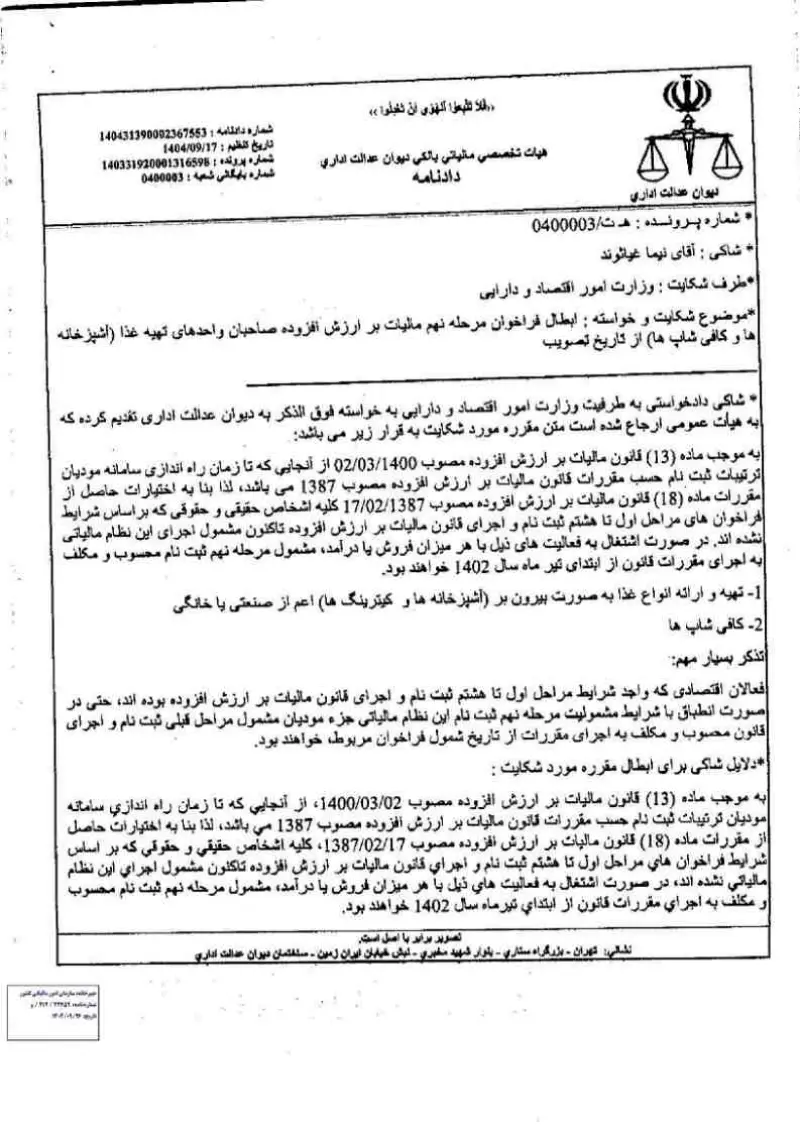 «فَلا تَتَّبِعُوا الْهَوى أَنْ تَعْدِلُوا»
هیات تخصصی مالیاتی بانکی دیوان عدالت اداری
دادنامه
شماره دادنامه : 140431390002367553
تاریخ تنظیم : 1404/09/17
شماره پرونده : 140331920001316598
شماره بایگانی شعبه : 0400003
دیوان عدالت اداری
* شماره پـرونـــده : هـ ت/0400003
* شاکی : آقای نیما غیاثوند
*طرف شکایت : وزارت امور اقتصاد و دارایی
*موضوع شکایت و خواسته : ابطال فراخوان مرحله نهم مالیات بر ارزش افزوده صاحبان واحدهای تهیه غذا (آشپزخانه
ها و کافی شاپ ها) از تاریخ تصویب
* شاکی دادخواستی به طرفیت وزارت امور اقتصاد و دارایی به خواسته فوق الذکر به دیوان عدالت اداری تقدیم کرده که
به هیأت عمومی ارجاع شده است متن مقرره مورد شکایت به قرار زیر می باشد:
به موجب ماده (13) قانون مالیات بر ارزش افزوده مصوب 02/03/1400 از آنجایی که تا زمان راه اندازی سامانه مودیان
ترتیبات ثبت نام حسب مقررات قانون مالیات بر ارزش افزوده مصوب 1387 می باشد، لذا بنا به اختیارات حاصل از
مقررات ماده (18) قانون مالیات بر ارزش افزوده مصوب 17/02/1387 کلیه اشخاص حقیقی و حقوقی که براساس شرایط
فراخوان های مراحل اول تا هشتم ثبت نام و اجرای قانون مالیات بر ارزش افزوده تاکنون مشمول اجرای این نظام مالیاتی
نشده اند. در صورت اشتغال به فعالیت های ذیل با هر میزان فروش یا درآمد، مشمول مرحله نهم ثبت نام محسوب و مکلف
به اجرای مقررات قانون از ابتدای تیر ماه سال 1402 خواهند بود.
1- تهیه و ارائه انواع غذا به صورت بیرون بر (آشپزخانه ها و کیترینگ ها) اعم از صنعتی یا خانگی
2- کافی شاپ ها
تذکر بسیار مهم:
فعالان اقتصادی که واجد شرایط مراحل اول تا هشتم ثبت نام و اجرای قانون مالیات بر ارزش افزوده بوده اند، حتی در
صورت انطباق با شرایط مشمولیت مرحله نهم ثبت نام این نظام مالیاتی جزء مودیان مشمول مراحل قبلی ثبت نام و اجرای
قانون محسوب و مکلف به اجرای مقررات از تاریخ شمول فراخوان مربوط، خواهند بود.
*دلایل شاکی برای ابطال مقرره مورد شکایت :
به موجب ماده (13) قانون مالیات بر ارزش افزوده مصوب 1400/03/02، از آنجایی که تا زمان راه اندازي سامانه
مودیان ترتیبات ثبت نام حسب مقررات قانون مالیات بر ارزش افزوده مصوب 1387 مي باشد، لذا بنا به اختیارات حاصل
از مقررات ماده (18) قانون مالیات بر ارزش افزوده مصوب 1387/02/17، کلیه اشخاص حقیقی و حقوقي که بر اساس
شرایط فراخوان هاي مراحل اول تا هشتم ثبت نام و اجراي قانون مالیات بر ارزش افزوده تاکنون مشمول اجراي این نظام
مالیاتي نشده اند، در صورت اشتغال به فعالیت هاي ذیل با هر میزان فروش یا درآمد، مشمول مرحله نهم ثبت نام محسوب
و مکلف به اجراي مقررات قانون از ابتداي تیرماه سال 1402 خواهند بود.
تصویر برابر با اصل است.
نشانی: تهران - بزرگراه ستاری - بلوار شهید مخبري - نبش خیابان ایران زمین - ساختمان دیوان عدالت اداري
دبیرخانه سازمان امور مالیاتی کشور